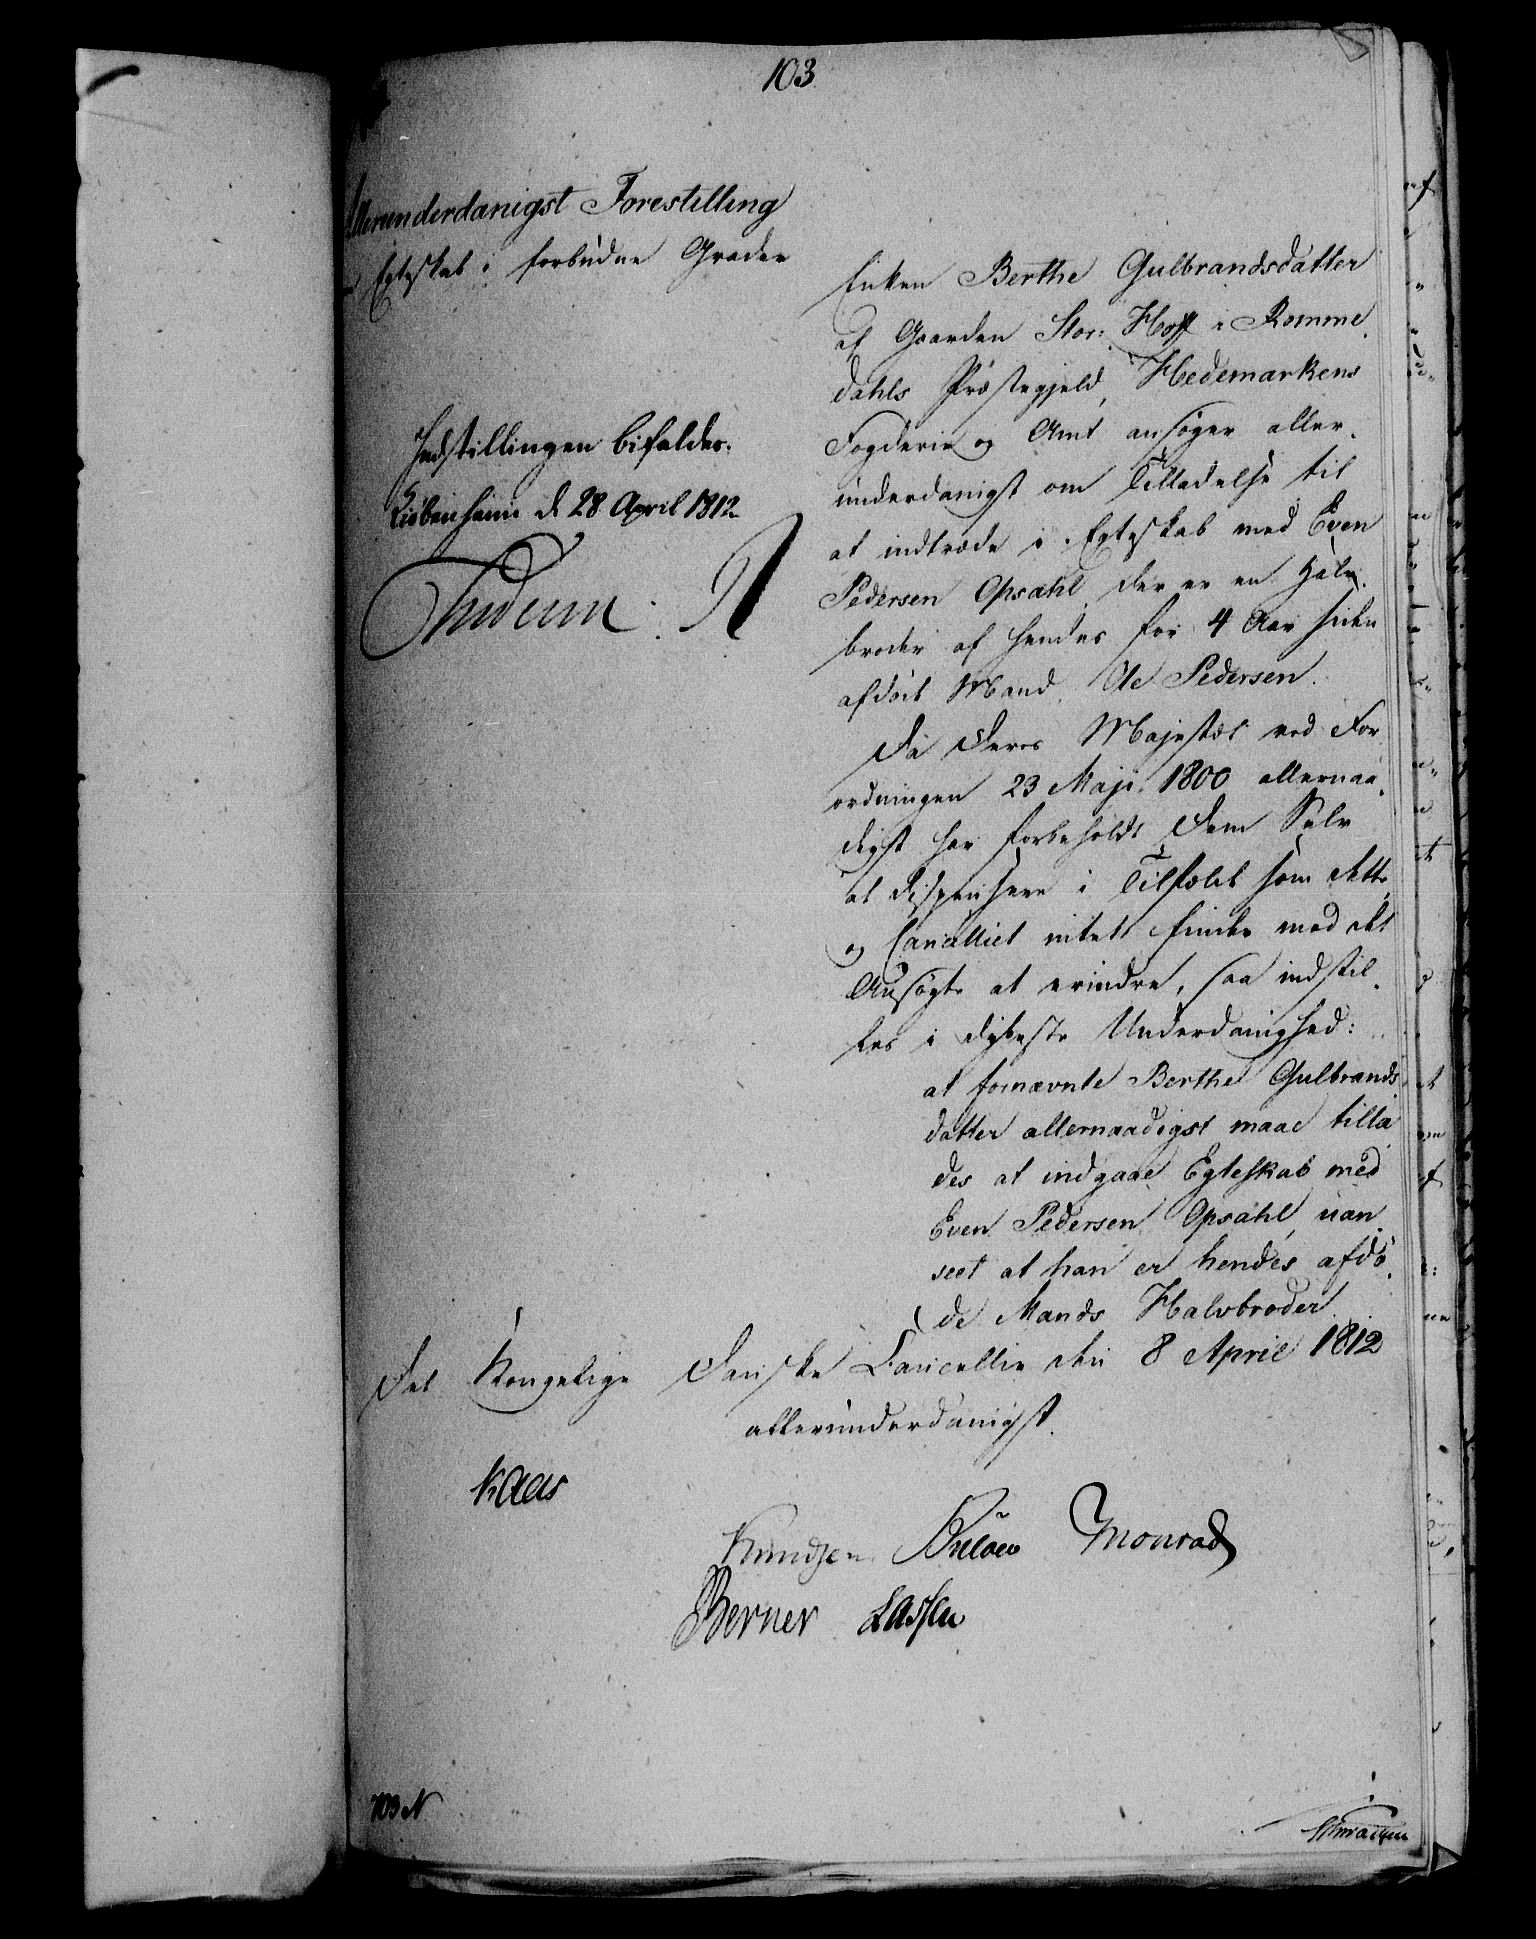 103
Allerunderdanigst Forestilling
Egteskab i forbudne Grader
Indstillingen bifaldes.
Kiøbenhavn d 28 April 1812
Friderich R
Enken Berthe Gulbrandsdatter
af Gaarden Stor: Hoff i Romme
dahls Præstegjeld, Hedemarkens
Fogderie og Amt ansøger aller
underdanigst om Tilladelse til
at indtræde i Egteskab med Even
Pedersen Opsahl, der er en Halv
broder af hendes for 4 Aar siden
afdøde Mand Ole Pedersen.
Da Deres Majestæt ved For
ordningen 23 Maji 1800 allernaa
digst har forbeholdt Dem Selv
at dispensere i Tilfælde som dette,
og Cancelliet intet finder med det
Ansøgte at erindre, saa indstil
les i dybeste Underdanighed:
at fornævnte Berthe Gulbrands
datter allernaadigst maae tilla
des at indgaae Egteskab med
Even Pedersen Opsahl, uan
seet at han er hendes afdø
de Mands Halvbroder
Det Kongelige Danske Cancellie den 8 April 1812
allerunderdanigst.
Kaas
Knudsen Bülow Monrad
Berner Lassen
703 N